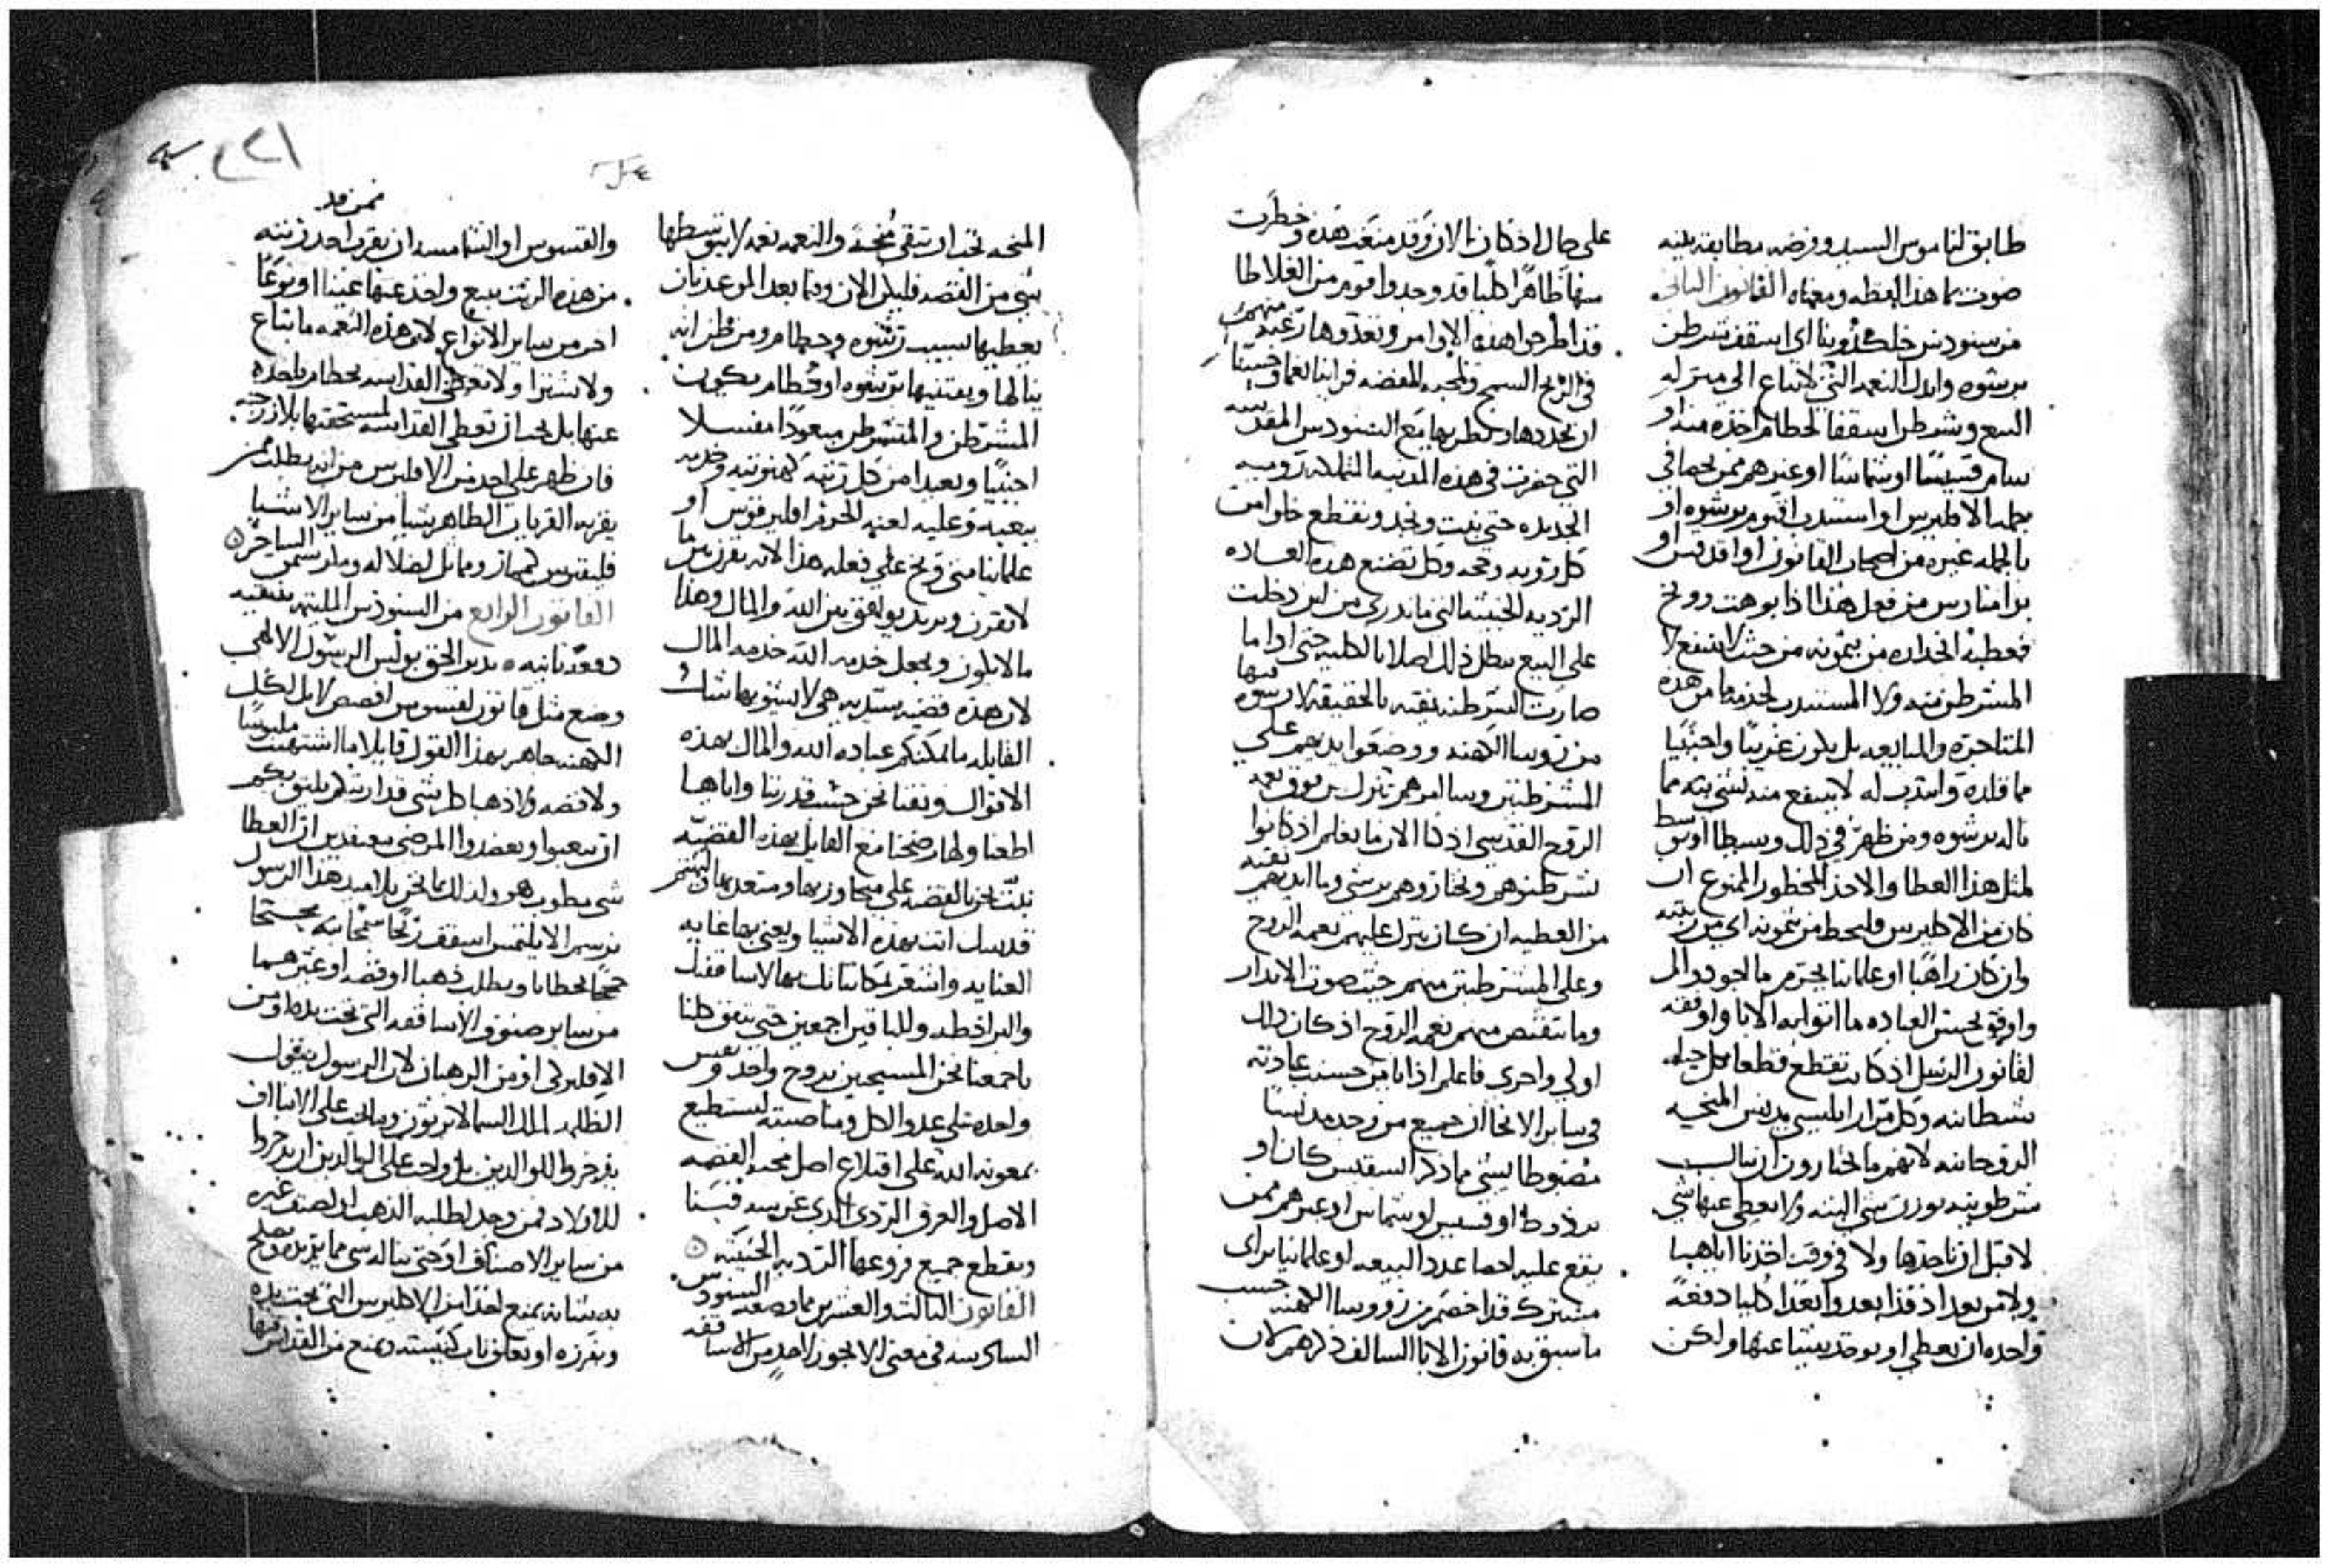 طابق لناموس السيد وفرضه مطابقه بينه
صوت هذا لفظه ومعناه القانون الثاني
من سنودس خلكدونيا اي اسقف شرطن
برشوه وابدل النعمه التي لا تباع الي منزله
البيع وشرطن اسقفا لحطام اخذه منه او
سام قسيسا او شماسا او غيرهم ممن يحصا في
جمله الاقليرس او استندب اقنوم برشوه او
بالجمله غيره من اصحاب القانون او اقدقس او
برامنارس من فعل هذا اذا بوهت ووبخ
فعطبه انحداره من مرتبته من حيث لا ينتفع لا
المشرطن منه ولا المستندب لخدمة ما من هذه
المتاجره والمبايعه بل يكون غريبا واجنبيا
مما قلده وانتدب له لا ينتفع منه بشي بته مما
ناله برشوه ومن ظهر في ذلك وسيطا او توسط
لمثل هذا العطا والاخذ المحظور الممنوع ان
كان من الاقليرس فليحط من مرتبته اي من رتبته
وان كان راهبا او علمانيا يحرم
واوفق بحسن العباده ما اتوا به الابا واوفقه
لقانون الرسل اذ كانت تقطع قطعا كل حيله
شيطانيه وكل ابليسي يدنس المنحه
الروحانيه لانهم ما يختارون ان ينال
شرطونيه بوزن شي البته ولا يعطي عنها شي
لا قبل ان ناخذها ولا في وقت اخذنا اياها
ولا من بعد اذ قد ابعدوا بعدا كليا دفعة
واحده ان يعطي او يوخذ شيا عنها ولكن
علي حال اذ كان الان وقد منعت هذه وحظرت
منها ظاهرا كليا قد وجدوا قوم من الغلاطا
قد اطرحوا هذه الاوامر وتعدوها رغبة منهم
في الربح السمج ولمحبه الفضه فراينا نعما وحسنا
ان نجددها ونظربها مع السنودس المقدسه
التي حضرت في هذه المدينه المتملكه روميه
الجديده حتي نبت ونجد ونقطع
كل رويه وحجه وكل تصنع هذه العاده
الرديه الخبيثه التي ما ندري من اين دخلت
علي البيع يبطل ذلك اصلا بالكليه حتي اذا ما
صارت الشرطنه نقيه بالحقيقه لا رشوه فيها
من روسا الكهنه ووضعوا ايديهم علي
المشرطنين وسالوهم تنزل من فوق نعمه
الروح القدسي اذ كنا الان ما نعلم اذ كانوا
يشرطنوهم ويختاروهم برشي وما ايديهم نقيه
من العطيه ان كان ينزل عليهم نعمه الروح
وعلي المشرطنين منهم حيث صوت الابتدار
وما تنتقص منهم نعمه الروح اذ كان ذلك
اولي واحري فاعلم اذا من حسنت عبادته
في ساير الانحا ان جميع من وجد مدنسا
مضبوطا بشي مما ذكر اسقفس كان او
بردوط او قسيس او شماس او غيرهم ممن
يقع عليه احصا عدد البيعه او علمانيا يراي
مشترك قد اخصم من زي روسا الكهنه حسب
ما سبق به قانون الابا السالف ذكرهم لان
المنحه يجب ان تبقي منحه والنعمه نعمه لا يتوسطها
شي من الفضه قليل الان وفيما بعد المرعد بان
يعطيها بسبب رشوه وحطام ومن ظن انه
ينالها ويقتنيها برشوه او حطام يكون
المشرطن والمتشرطن مبعودا مفسلا
اجنبيا وبعيدا من كل رتبه كهنوتيه وخدمه
بيعيه وعليه لعنه الحرم اقليرقوس او
علمانيا متي وبخ علي فعله هذا لانه يقرن من ما
لا يقرن ويريد يوافق بين الله والمال وهذا
ما لا يكون ويجعل خدمه الله خدمه المال
لان هذه قضيه سيديه هي لا يشوبها شك
القايله ما يمكنكم عباده الله والمال بهذه
الاقوال وثقنا نحن حسب قدرتنا واياها
اطعنا ولها رضخنا مع القايل بهذه القضيه
نبت نحن القضيه علي متجاوزيها ومتعديها والمهتم
قدسك انت بهذه الاشيا ويعني بها غايه
العنايه واشتهر بمكاتباتك بها لاساقفتك
والبراذطه وللباقين اجمعين حتي يتفق ظنا
باجمعنا نحن المسيحيين بروح واحد ونفس
واحده علي عدو الكل ومناصبته نستطيع
بمعونه الله علي اقتلاع اصل محبه الفضه
الاصل والعرق الردي الذي غرسه فينا
ونقطع جميع فروعها الرديه الخبيثه
القانون الثالث والعشرين مما وضعه السنودس
السادسه في معني الا يجوز لاحد من الاساقفه
ممن قد
والقسوس او الشمامسه ان يقرب احد رتبته
من هذه الرتب ببيع واخذ عنها عينا او نوعا
اخر من ساير الانواع لان هذه النعمه ما تباع
ولا تشترا ولا نعطي القداسه بحطام ناخذه
عنها بل يجب ان تعطي القداسه لمستحقيها بلا زرجنه
فان ظهر علي احد من الاقليرس من انه يطلب ممن
يقربه القربان الطاهر شيا من ساير الاشيا
فليقترس كمهماز ومماثل لضلاله ومكر سمن الساحر
القانون الرابع من السنودس الملتيمه بنيقيه
دفعة ثانيه بدير الحق بولس الرسول الالهي
وضع مثل قانون لقسوس افسس لا بل لكل
الكهنه جاهر بهذا القول قايلا ما اشتهيت ملبوسا
ولا فضه ولا ذهبا بل شي قد اريتكم يليق بكم
ان تتعبوا وتعضدوا المرضي معتقدين ان العطا
شي مطوب هو ولذلك نحن تلاميذ هذا الرسول
نرسم الا يلتمس اسقف ربحا سمجا بته محتجا
حججا لخطايا ويطلب ذهبا او فضه او غيرهما
من ساير صنوف الاساقفه التي تحت يده او من
الاقليركي او من الرهبان لان الرسول يقول
الظلمه لملك السما لا يرثون ويا يجب علي الابنا ان
يذخروا للوالدين بل واجب علي الوالدين ان يذخروا
للاولاد فمن وجد لطلبه الذهب او لصنف غيره
من ساير الاصناف او حتي يناله شي مما يريده ويصلح
به شانه يمنع احد من الاقليرس التي تحت يده
ويفرزه او يغلق باب كنيسته ويمنع من القداس فيها